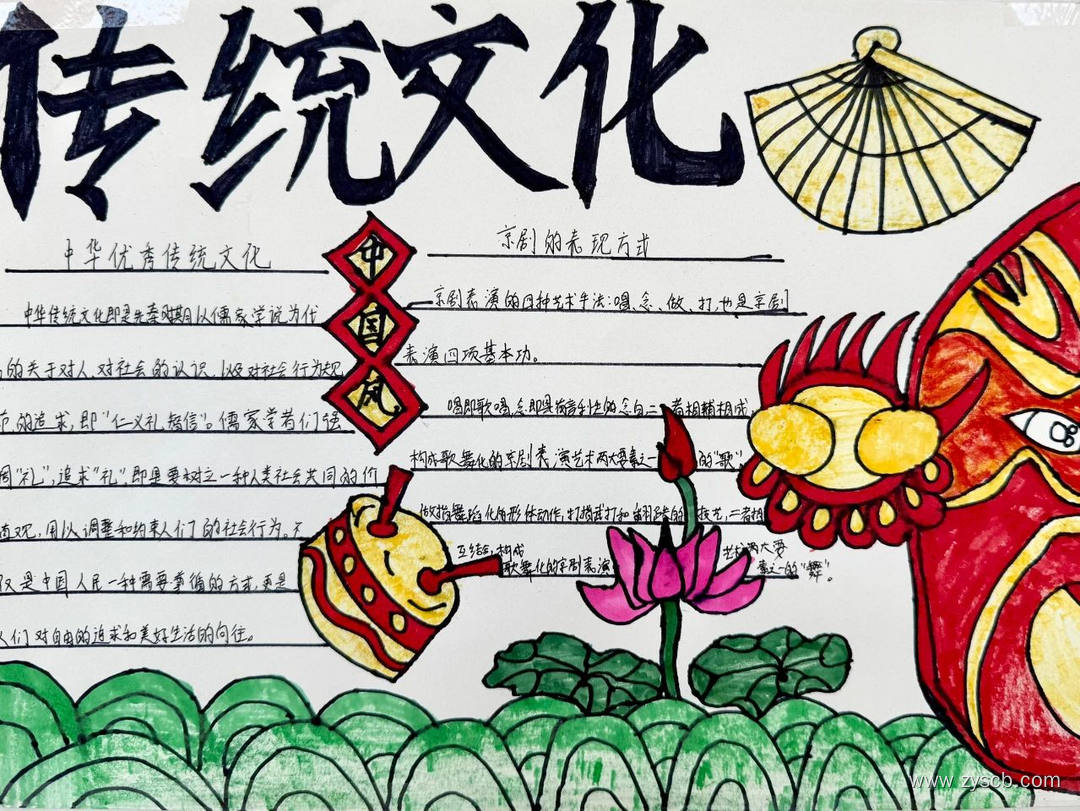 传统文化
中华优秀传统文化
中华传统文化即是先秦时期以儒家学说为代
的关于对人、对社会的认识、以及对社会行为规
的追求,即“仁义礼智信”。儒家学者们强
调“礼”,追求“礼”,即是要树立一种人类社会共同的价
值观,用以调整和约束人们的社会行为。不
仅是中国人民一种需要尊循的方式,更是
人们对自由的追求和美好生活的向往。
中
国
风
京剧的表现方式
京剧表演的四种艺术手法:唱、念、做、打,也是京剧
表演四项基本功。
唱即歌唱,念即是 的念白二者相辅相成,
构成歌舞化的京剧表演艺术两大要素之一的“歌”,
做指舞蹈化的形体动作,打指武打和翻跌的技艺,二者相
互结合,构成
歌舞化的京剧表演艺术两大要
素之一的“舞”。
www.zyscb.com